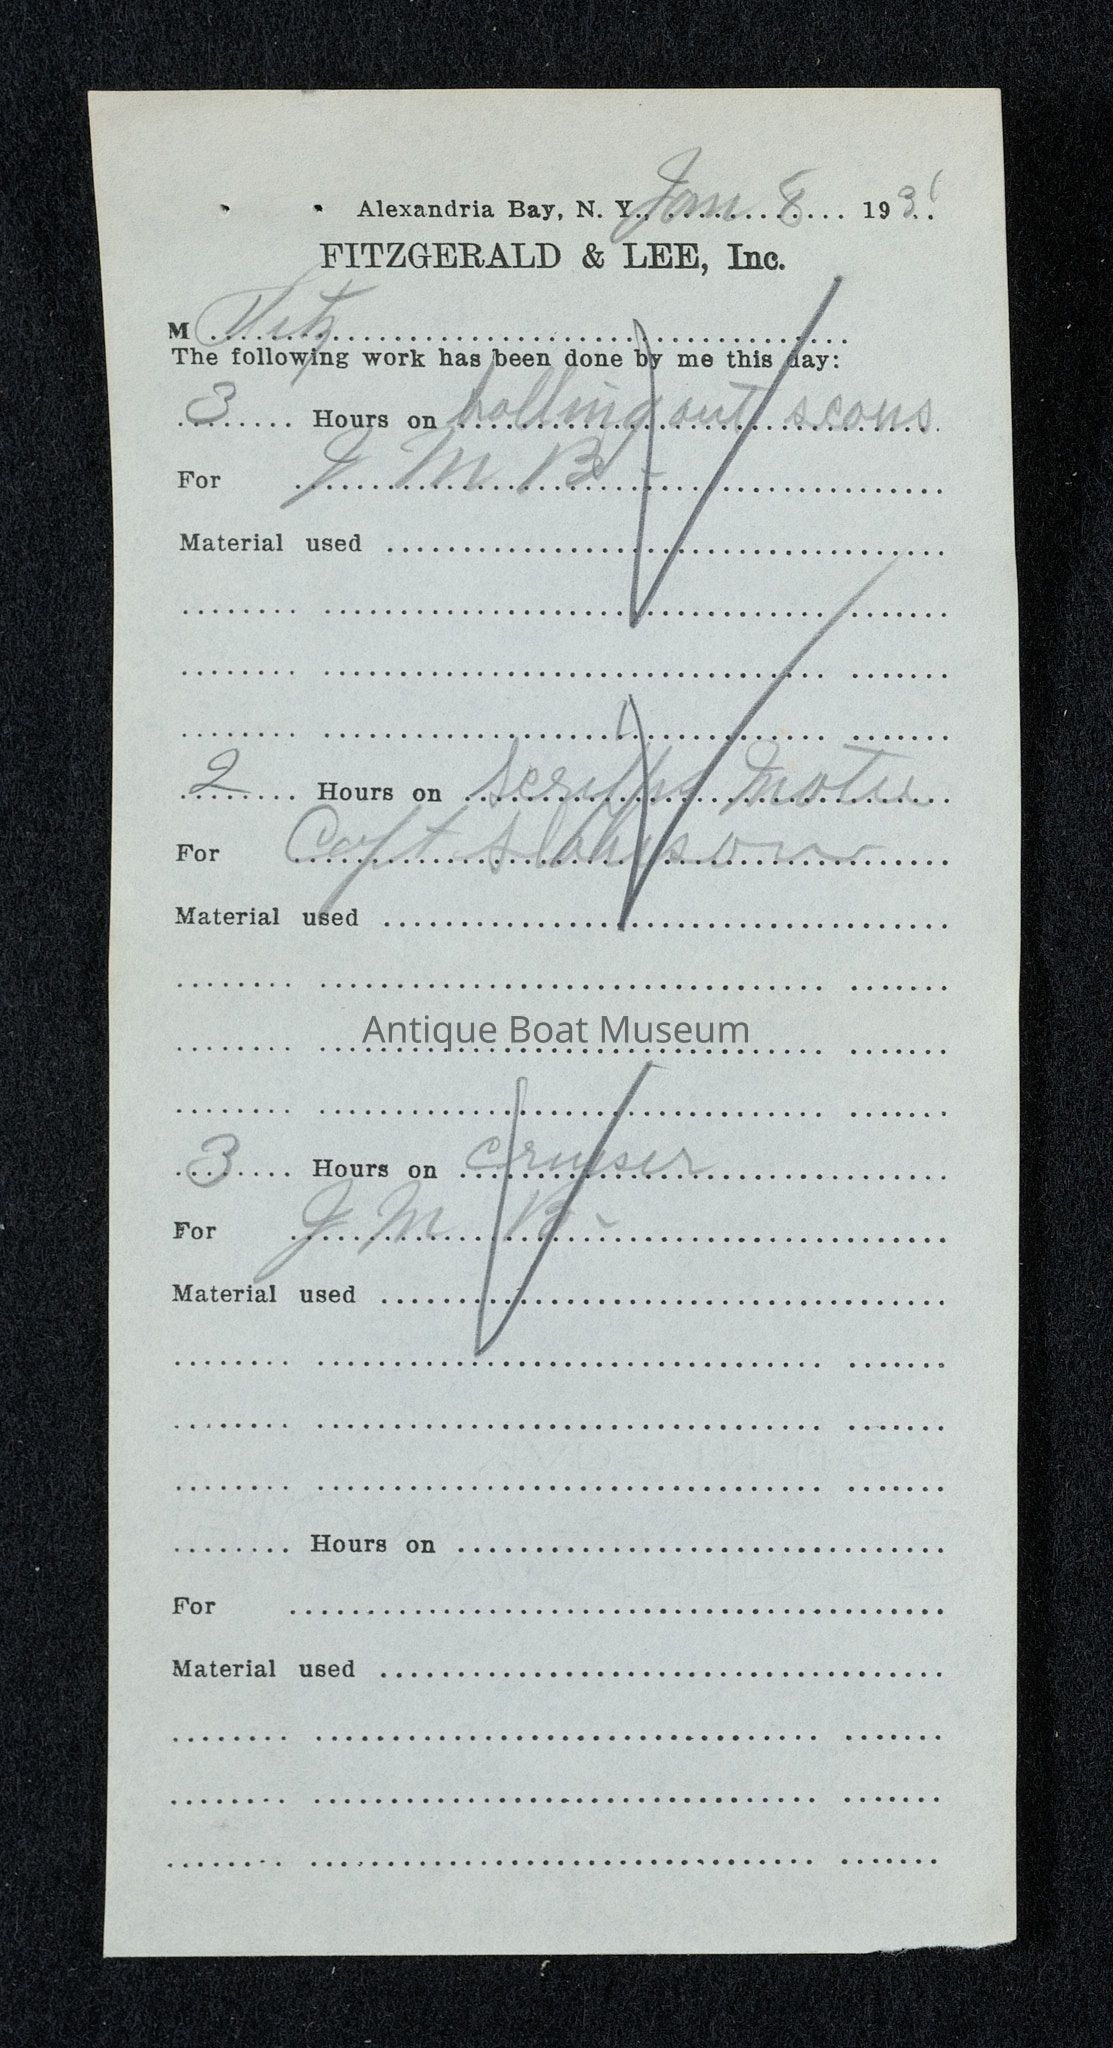 Alexandria Bay, N. Y., Jan 8 193
FITZGERALD & LEE, Inc.
M Fitz
The following work has been done by me this day:
3 Hours on out
For J M B -
Material used
2 Hours on Scripps Motor
For Capt
Material used
Antique Boat Museum
3 Hours on cruiser
For J M B -
Material used
Hours on
For
Material used